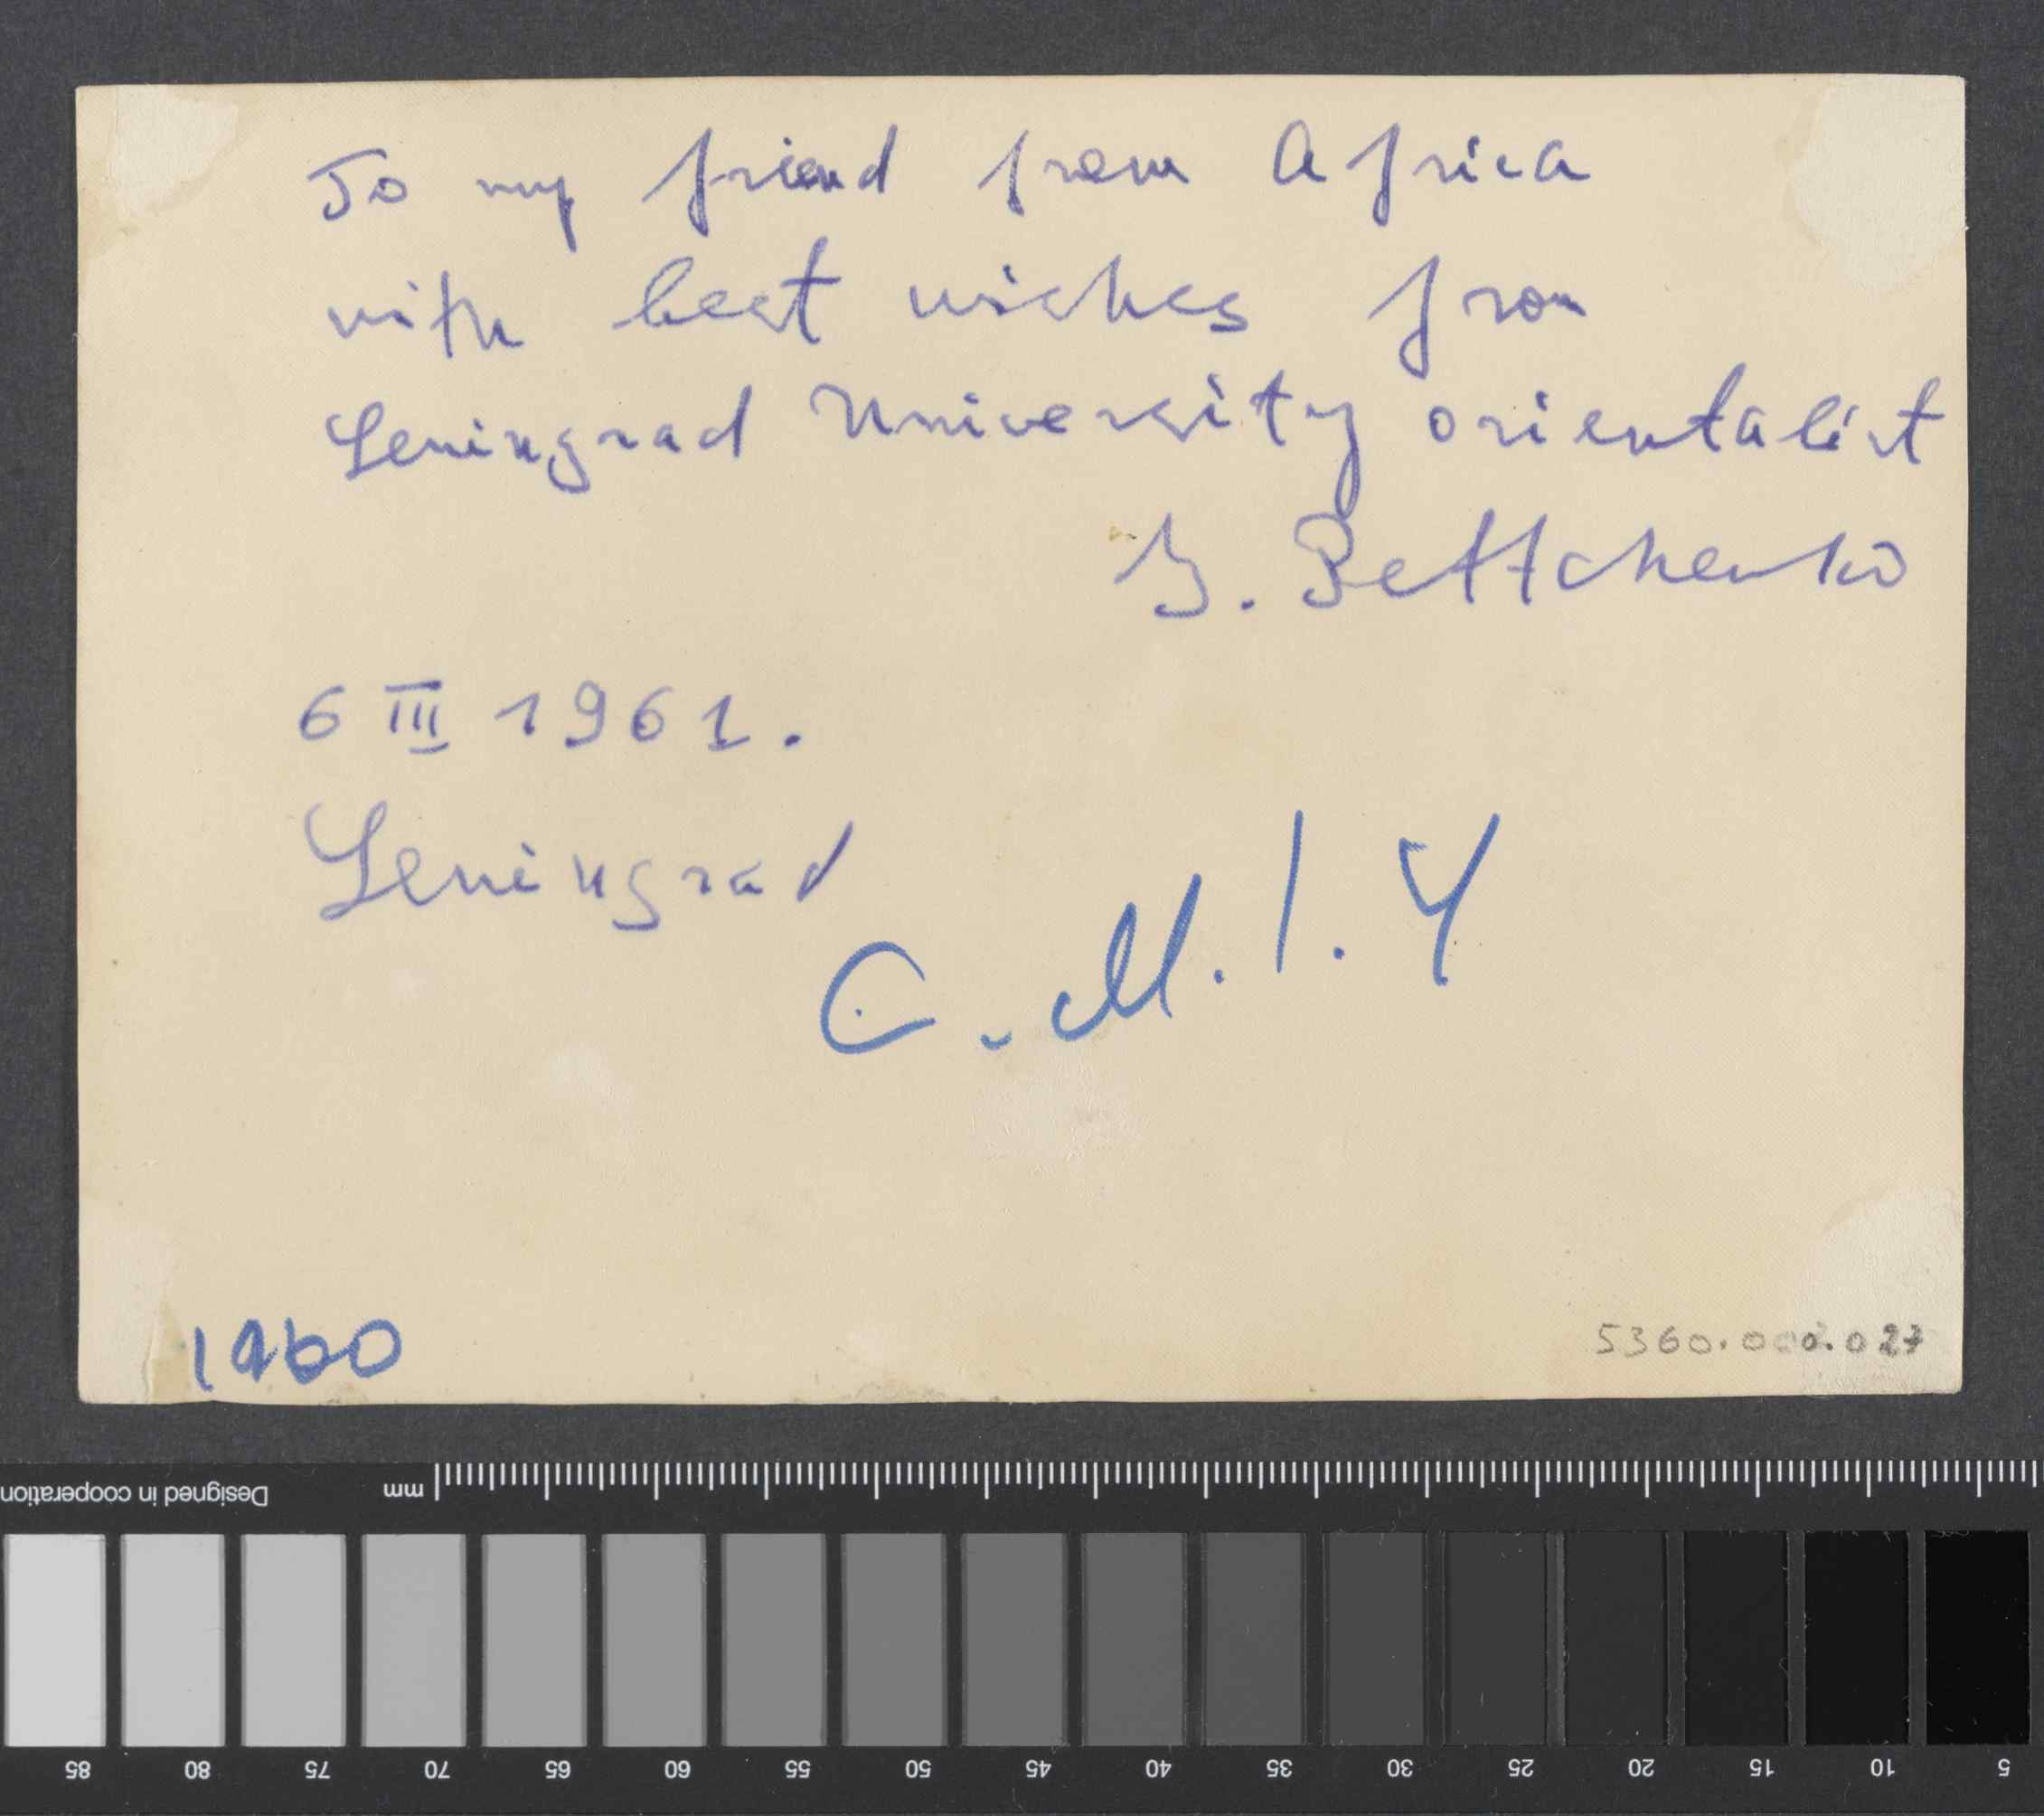 To my friend from Africa
with best wishes from
Leningrad University orientalist
6 III 1961.
Leningrad
C. M. I. Y
1960
5360.002.027
Designed in cooperation
mm
85 80 75 70 65 60 55 50 45 40 35 30 25 20 15 10 5